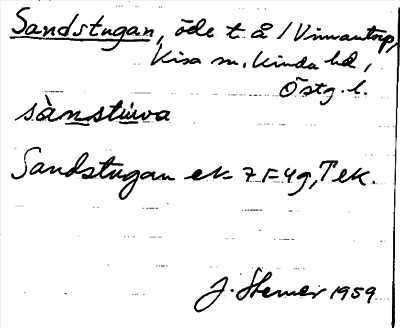 Sandstugan, öde t å / Vinnantorp,
Kisa sn, Kinda hd,
Östg. l.
sànstúwa
Sandstugan ek 7F4g, T ek.
J. Stemer 1959